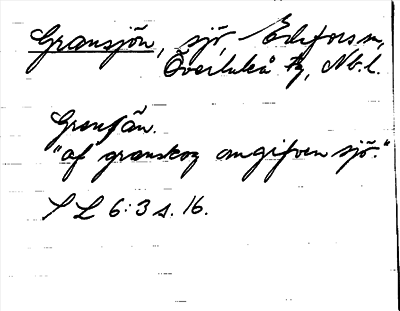 Gransjön, sjö, Edefors sn,
Överluleå tg, Nb.l.
Gronsĩän.
"af granskog omgifven sjö."
S L 6:3 s. 16.